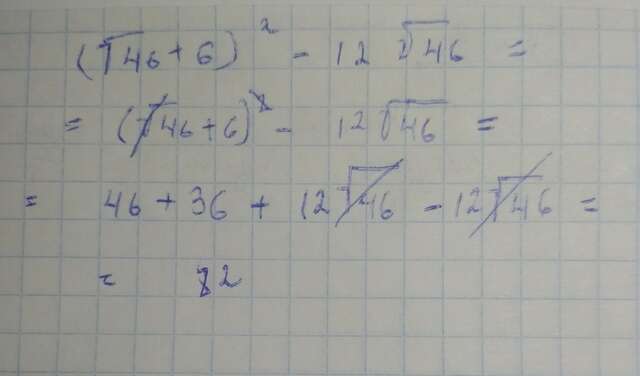 (√46 + 6)² - 12 √46 =
= (√46 + 6)² - 12√46 =
= 46 + 36 + 12√46 - 12√46 =
= 82